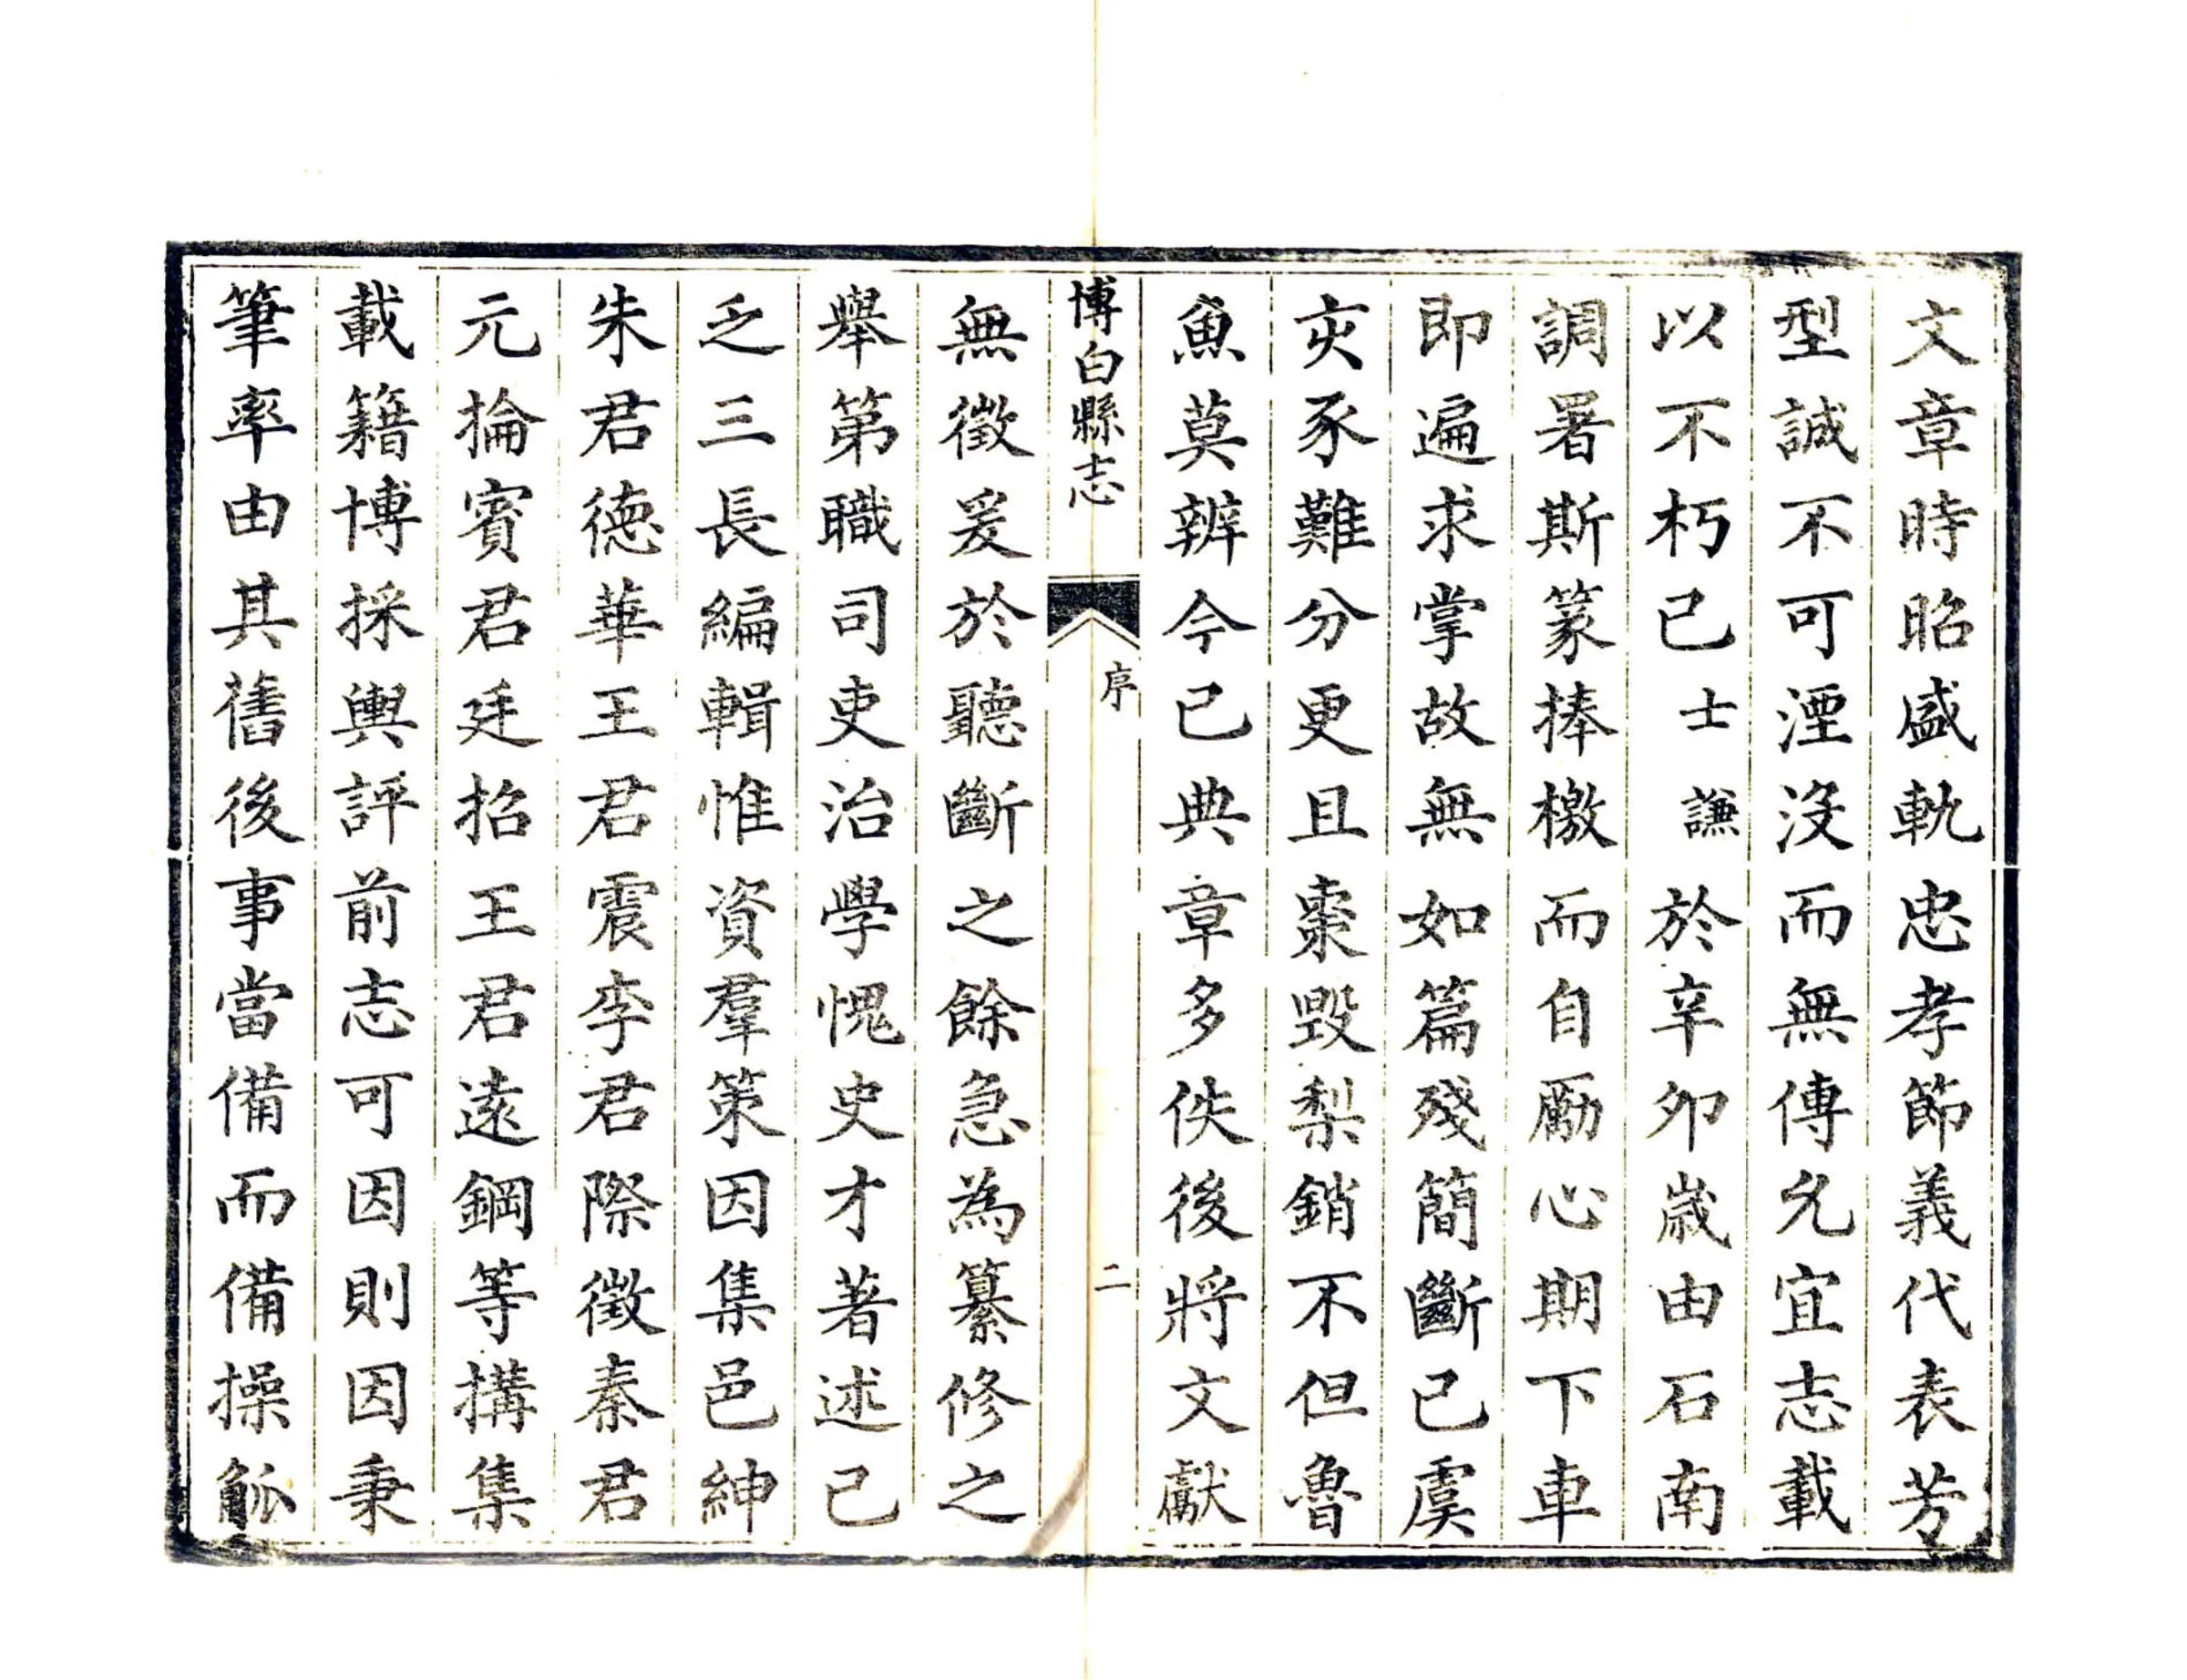 文章時昭盛軌忠孝節義代表芳
型誠不可湮沒而無傳允宜志載
以不朽已士謙於辛夘歲由石南
調署斯篆捧檄而自勵心期下車
即遍求掌故無如篇殘簡斷已虞
亥豕難分更且棗毀梨銷不但魯
魚莫辨今已典章多佚後將文獻
博白縣志
序
二
無徵爰於聽斷之餘急為纂修之
舉第職司吏治學愧史才著述已
乏三長編輯惟資羣策因集邑紳
朱君德華王君震李君際徵秦君
元掄賓君廷招王君遠鋼等搆集
載籍博採輿評前志可因則因秉
筆率由其舊後事當備而備操觚